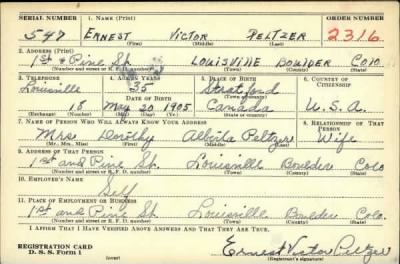 SERIAL NUMBER 1. NAME (Print) ORDER NUMBER
547 ERNEST VICTOR PELTZER 2316
(First) (Middle) (Last)
2. ADDRESS (Print)
1st & Pine St LOUISVILLE BOULDER COLO
(Number and street or R. F. D. number) (Town) (County) (State)
3. TELEPHONE 4. AGE IN YEARS 5. PLACE OF BIRTH 6. COUNTRY OF CITIZENSHIP
Louisville 35 Stratford
DATE OF BIRTH (Town or county)
18 May 20 1905 Canada U.S.A.
(Exchange) (Number) (Mo.) (Day) (Yr.) (State or country)
7. NAME OF PERSON WHO WILL ALWAYS KNOW YOUR ADDRESS 8. RELATIONSHIP OF THAT PERSON
Mrs Dorothy Alberta Peltzer Wife
(Mr., Mrs., Miss) (First) (Middle) (Last)
9. ADDRESS OF THAT PERSON
1st and Pine St. Louisville Boulder Colo
(Number and street or R. F. D. number) (Town) (County) (State)
10. EMPLOYER'S NAME
Self
11. PLACE OF EMPLOYMENT OR BUSINESS
1st and Pine St. Louisville Boulder Colo.
(Number and street or R. F. D. number) (Town) (County) (State)
I AFFIRM THAT I HAVE VERIFIED ABOVE ANSWERS AND THAT THEY ARE TRUE.
REGISTRATION CARD
D. S. S. Form 1
Ernest Victor Peltzer
(Registrant's signature)